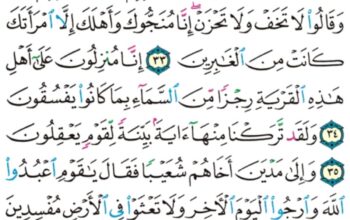 وَقَالُوا۟ لَا تَخَفْ وَلَا تَحْزَنْ ۖ إِنَّا مُنَجُّوكَ وَأَهْلَكَ إِلَّا ٱمْرَأَتَكَ
كَانَتْ مِنَ ٱلْغَـٰبِرِينَ ٣٣ إِنَّا مُنزِلُونَ عَلَىٰٓ أَهْلِ
هَـٰذِهِ ٱلْقَرْيَةِ رِجْزًا مِّنَ ٱلسَّمَآءِ بِمَا كَانُوا۟ يَفْسُقُونَ
٣٤ وَلَقَد تَّرَكْنَا مِنْهَآ ءَايَةًۢ بَيِّنَةً لِّقَوْمٍ يَعْقِلُونَ
٣٥ وَإِلَىٰ مَدْيَنَ أَخَاهُمْ شُعَيْبًا فَقَالَ يَـٰقَوْمِ ٱعْبُدُوا۟
ٱللَّهَ وَٱرْجُوا۟ ٱلْيَوْمَ ٱلْـَٔاخِرَ وَلَا تَعْثَوْا۟ فِى ٱلْأَرْضِ مُفْسِدِينَ